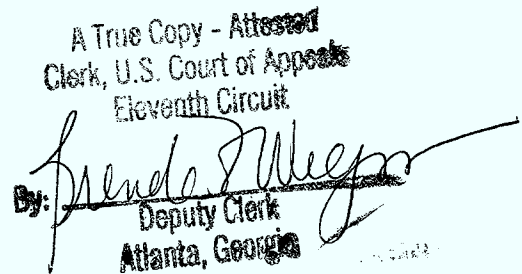 A True Copy - Attested
Clerk, U.S. Court of Appeals
Eleventh Circuit
By: Brenda
Deputy Clerk
Atlanta, Georgia